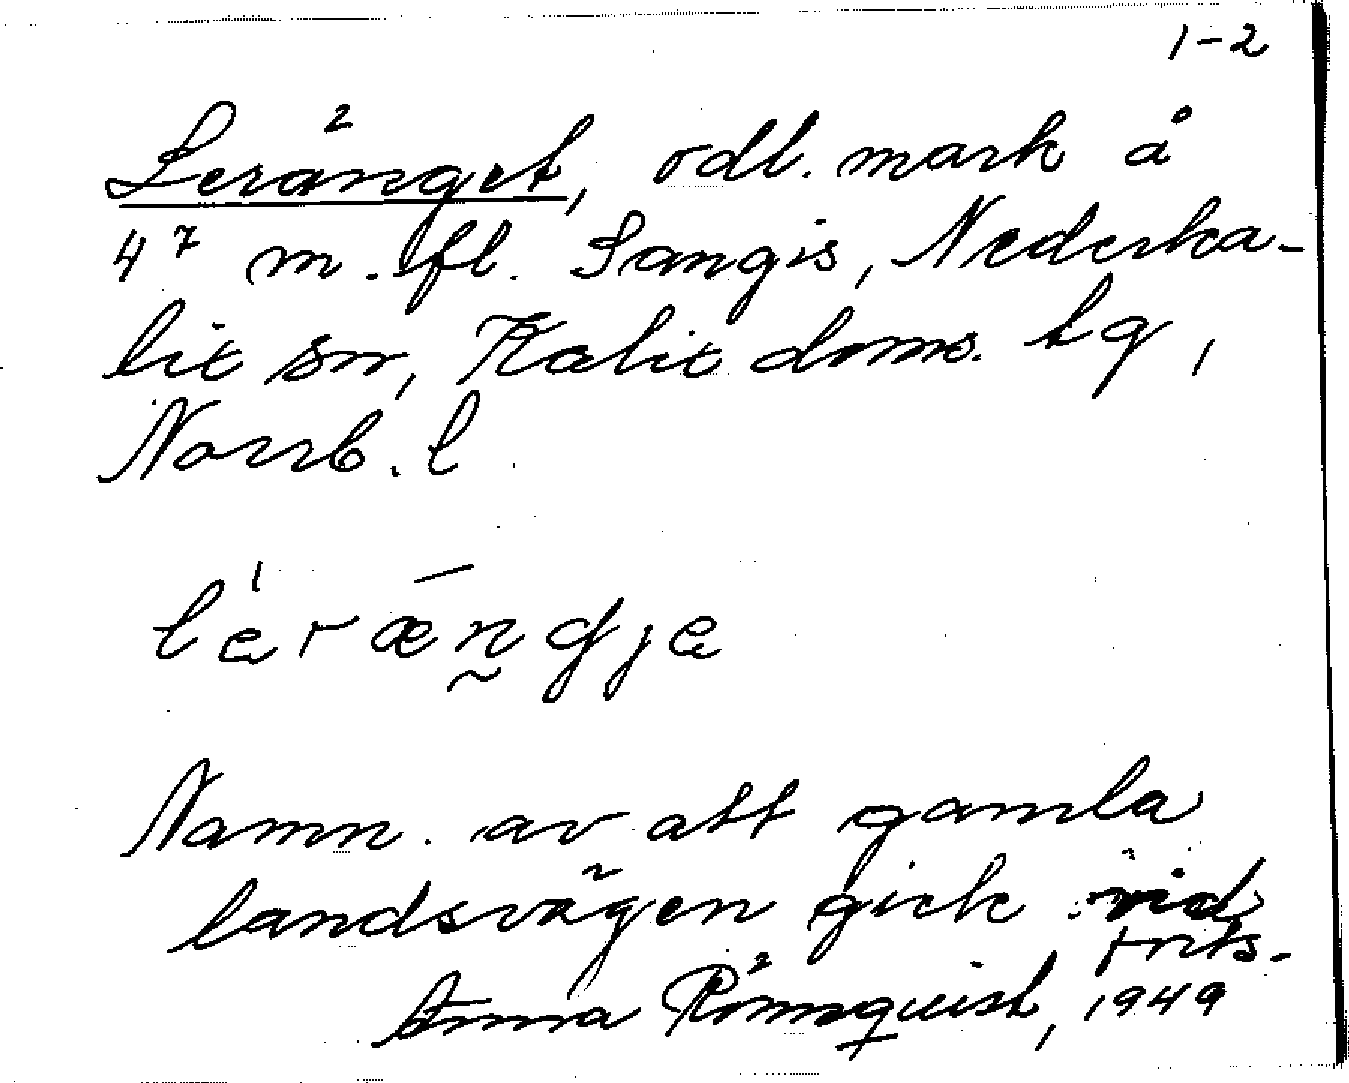 1-2
Leränget, odl. mark å
4⁷ m. fl. Sangis, Nederka-
lix sn, Kalix doms. lg,
Norrb. l.
lerængje
Namn. av att gamla
landsvägen gick vid
Anna Rönnquist, 1949